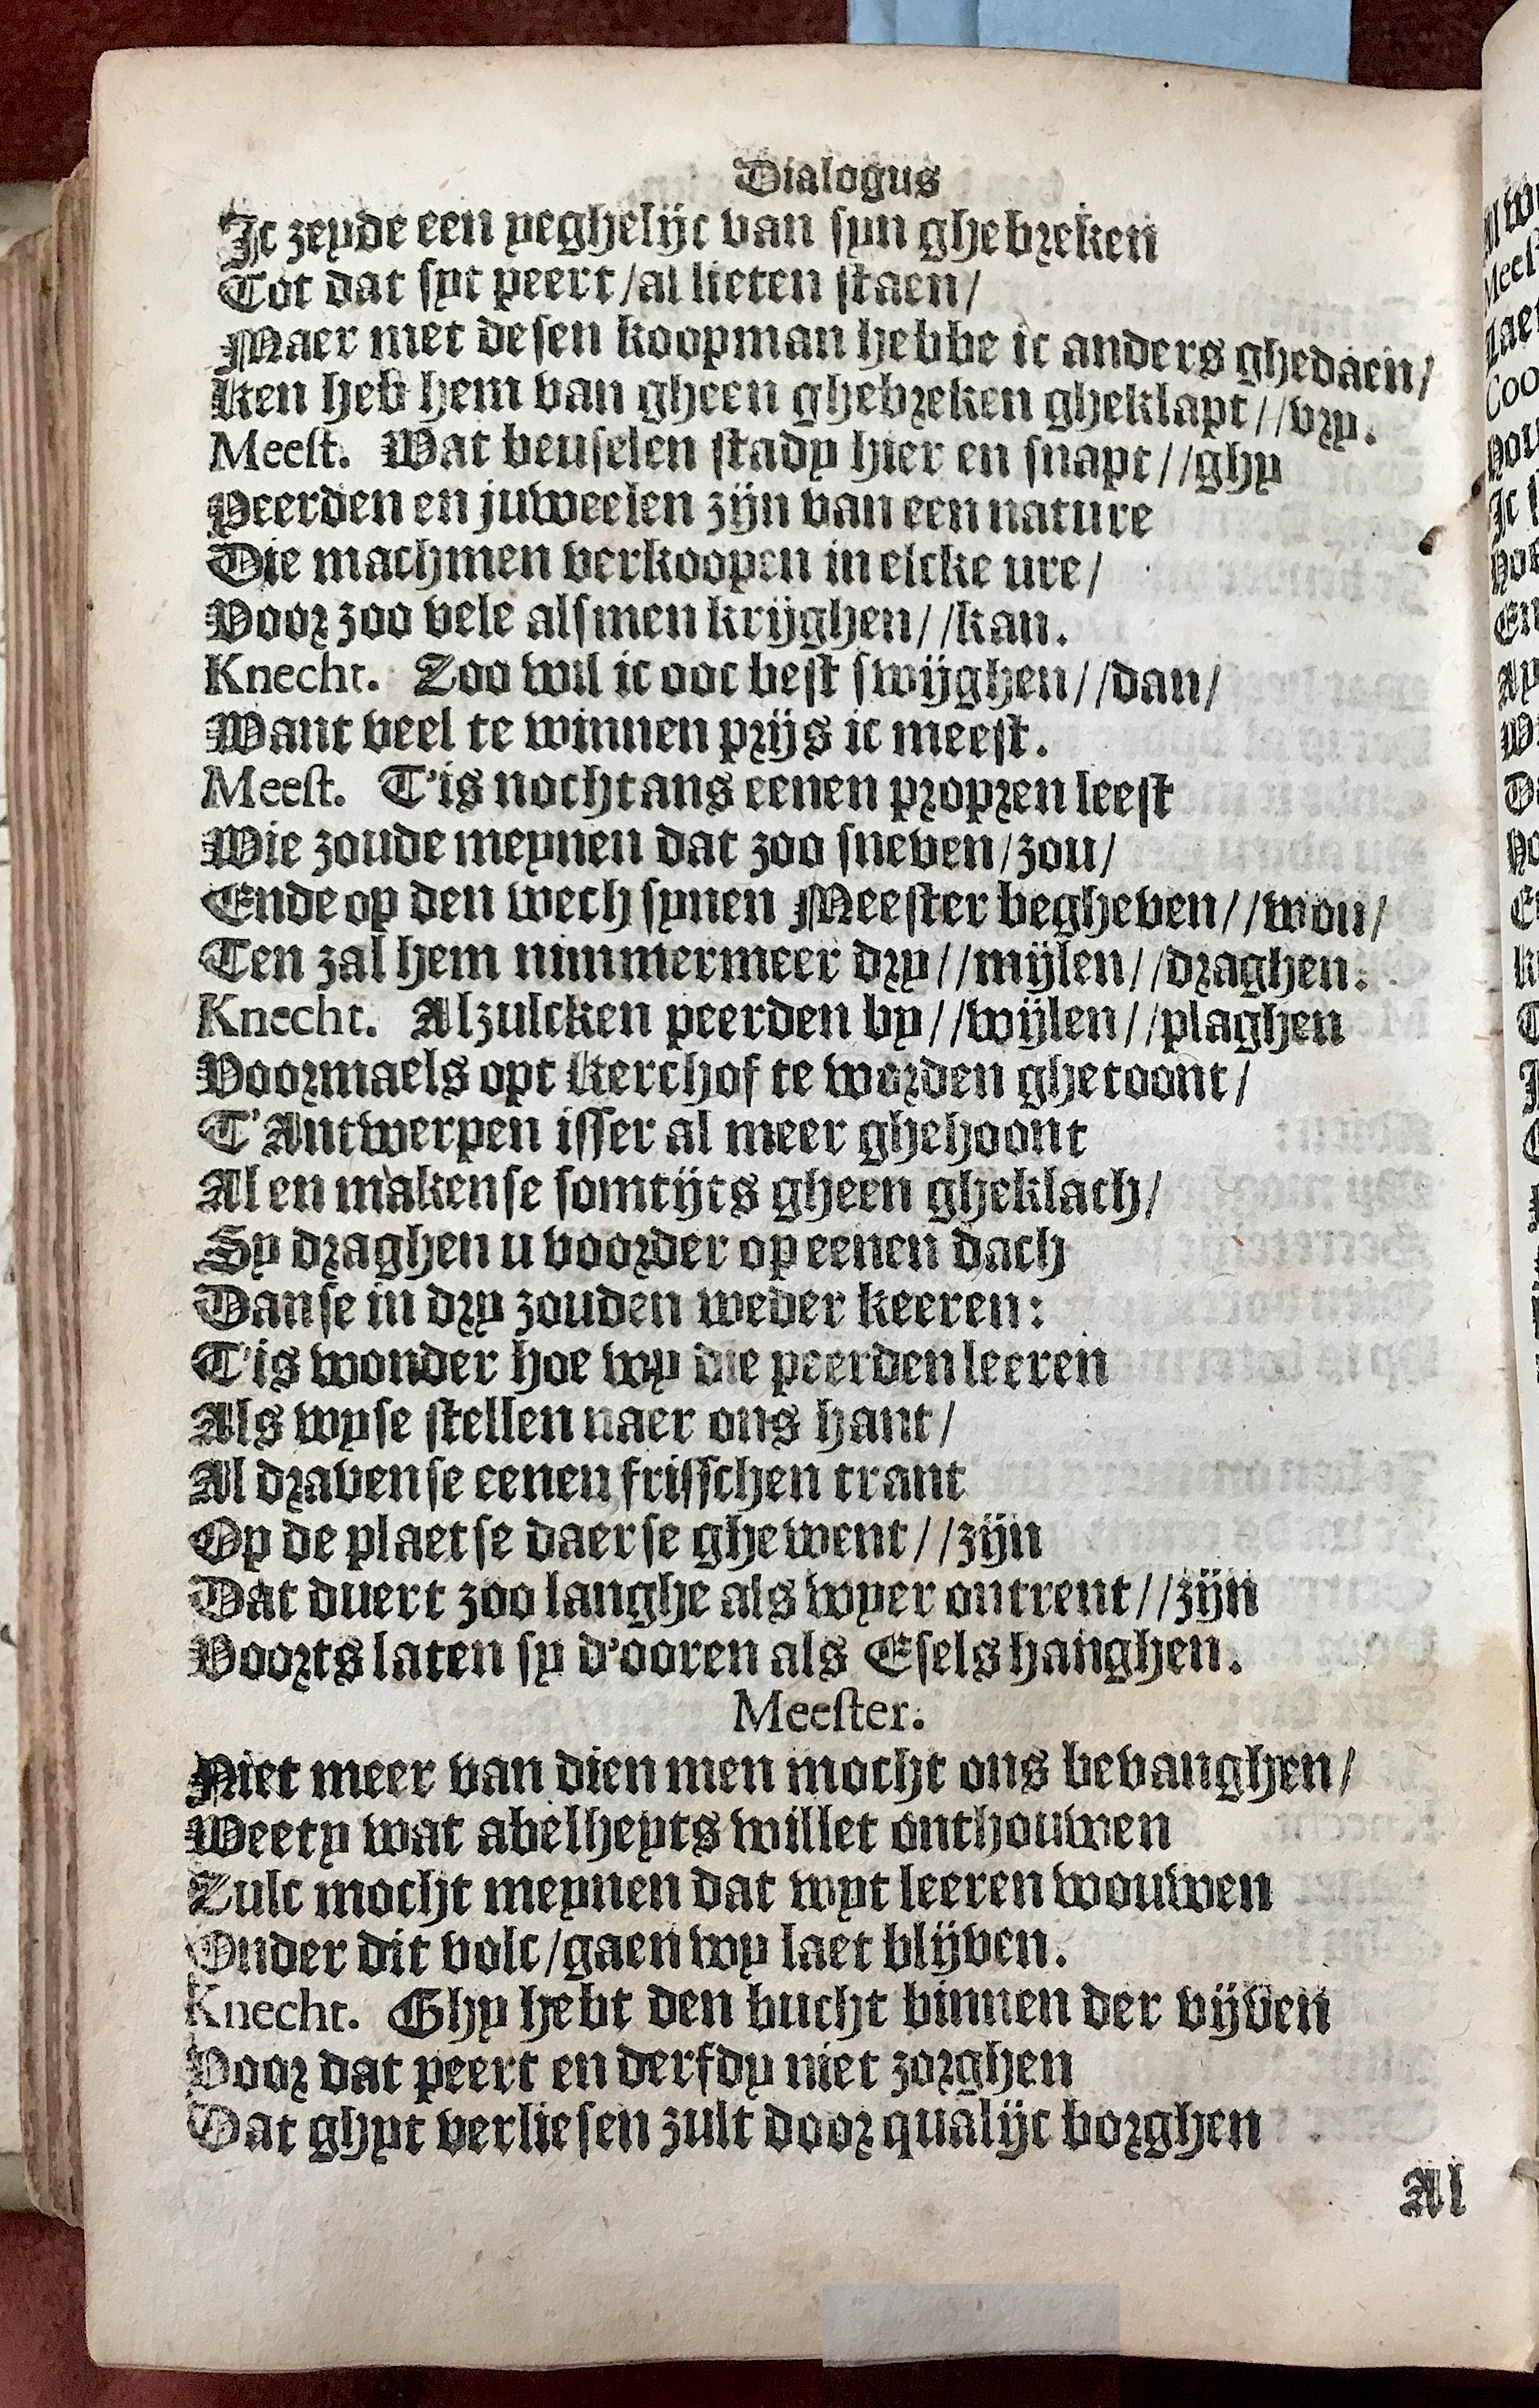 Dialogus
Jc zeyde een yeghelijc van syn ghebreken
Tot dat syt peert/al lieten staen/
Maer met desen koopman hebbe ic anders ghedaen/
Ken heb hem van gheen ghebreken gheklapt//vry.
Meest. Wat beuselen stady hier en snapt//ghy
Peerden en juweelen zijn van een nature
Die machmen verkoopen in elcke ure/
Voor zoo vele alsmen krijghen//kan.
Knecht. Zoo wil ic ooc best swijghen//dan/
Want veel te winnen prijs ic meest.
Meest. T'is nochtans eenen propren leest
Wie zoude meynen dat zoo sneven/zou/
Ende op den wech synen Meester begheven//wou/
Ten zal hem nimmermeer dry//mijlen//draghen.
Knecht. Alzulcken peerden by//wijlen//plaghen
Voormaels opt kerchof te worden ghetoont/
T'Antwerpen isser al meer ghehoont
Al en makense somtijts gheen gheklach/
Sy draghen u voorder op eenen dach
Danse in dry zouden weder keeren:
T'is wonder hoe wy die peerden leeren
Als wyse stellen naer ons hant/
Al dravense eenen frisschen trant
Op de plaetse daerse ghewent//zijn
Dat duert zoo langhe als wyer ontrent//zijn
Voorts laten sy d'ooren als Esels hanghen.
Meester.
Niet meer van dien men mocht ons bevanghen/
Weety wat abelheyts willet onthouwen
Zulc mocht meynen dat wyt leeren wouwen
Onder dit volc/gaen wy laet blijven.
Knecht. Ghy hebt den bucht binnen der vijven
Voor dat peert en derfdy niet zorghen
Dat ghyt verliesen zult door qualijc borghen
Al